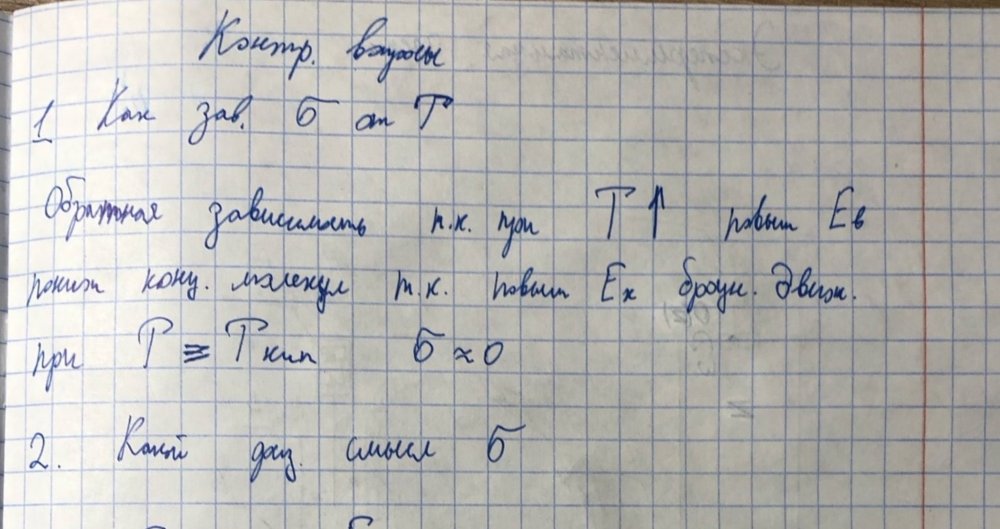 Контр. вопросы
1 Как зав. σ от T
Обратная зависимость т.к. при T↑ повыш Eв
пониж конц. молекул т.к. повыш Eк броун. движ.
при T ≡ Tкип σ ≈ 0
2. Какой физ. смысл σ